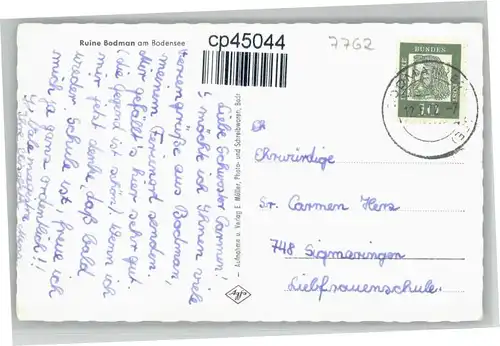 Ruine Bodman am Bodensee
cp45044
7762
DEUTSCHE BUNDESPOST
Liebe Schwester Carmen!
Es möchte ich Ihnen viele
Feriengrüße aus Bodman,
meinem Ferienort senden.
Mir gefällt's hier sehr gut.
(Die Gegend ist schön!) Wenn ich
mir jetzt denke, daß bald
wieder Schule ist, freue ich
mich ja ganz ordentlich!!
Viele
Aufnahme u. Verlag E. Müller, Photo- und Schreibwaren, Bodman
Ehrwürdige
Sr. Carmen Herz
748 Sigmaringen
Liebfrauenschule